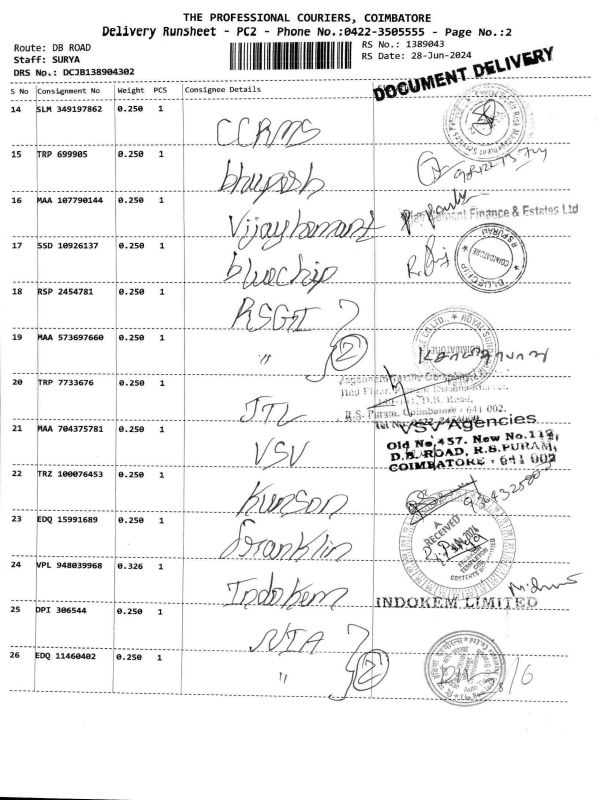 THE PROFESSIONAL COURIERS, COIMBATORE
Delivery Runsheet - PC2 - Phone No.:0422-3505555 - Page No.:2
Route: DB ROAD
RS No.: 1389043
Staff: SURYA
RS Date: 28-Jun-2024
DRS No.: DCJB138904302
DOCUMENT DELIVERY
S No Consignment No Weight PCS Consignee Details
14 SLM 349197862 0.250 1 CCRMS
15 TRP 699905 0.250 1 bhupesh
16 MAA 107790144 0.250 1 Vijayhemant
Finance & Estates Ltd
17 SSD 10926137 0.250 1 bluechip
BLUECHIP R.S.PURAM COIMBATORE
18 RSP 2454781 0.250 1 RSGI
19 MAA 573697660 0.250 1 〃 2
20 TRP 7733676 0.250 1 JTL
D.B. Road,
R.S. Puram, Coimbatore - 641 002.
21 MAA 704375781 0.250 1 VSV
VSV Agencies
Old No.457, New No.112,
D.B. ROAD, R.S.PURAM,
COIMBATORE - 641 002
22 TRZ 100076453 0.250 1 Kunson
23 EDQ 15991689 0.250 1 Franklin
RECEIVED
24 VPL 948039968 0.326 1 Indokem
INDOKEM LIMITED
25 DPI 306544 0.250 1 NIA
26 EDQ 11460402 0.250 1 〃 2